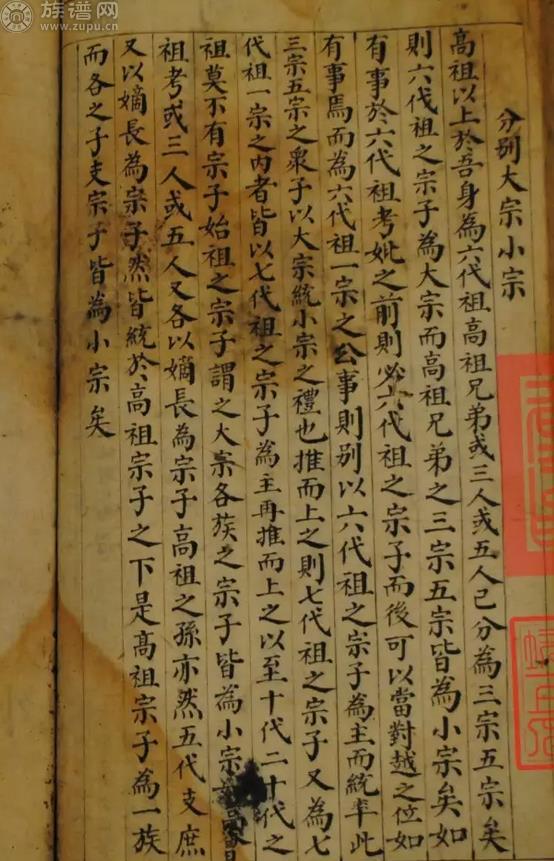 族谱网
www.zupu.cn
分别大宗小宗
高祖以上於吾身為六代祖高祖兄弟或三人或五人已分為三宗五宗矣
則六代祖之宗子為大宗而高祖兄弟之三宗五宗皆為小宗矣如
有事於六代祖考妣之前則必六代祖之宗子而後可以當對越之位如
有事焉而為六代祖一宗之公事則别以六代祖之宗子為主而統率此
三宗五宗之衆子以大宗統小宗之禮也推而上之則七代祖之宗子又為七
代祖一宗之內者皆以七代祖之宗子為主再推而上之以至十代二十代之
祖莫不有宗子始祖之宗子謂之大宗各族之宗子皆為小宗
祖考或三人或五人又各以嫡長為宗子高祖之孫亦然五代支庶
又以嫡長為宗子然皆統於高祖宗子之下是髙祖宗子為一族
而各之子支宗子皆為小宗矣